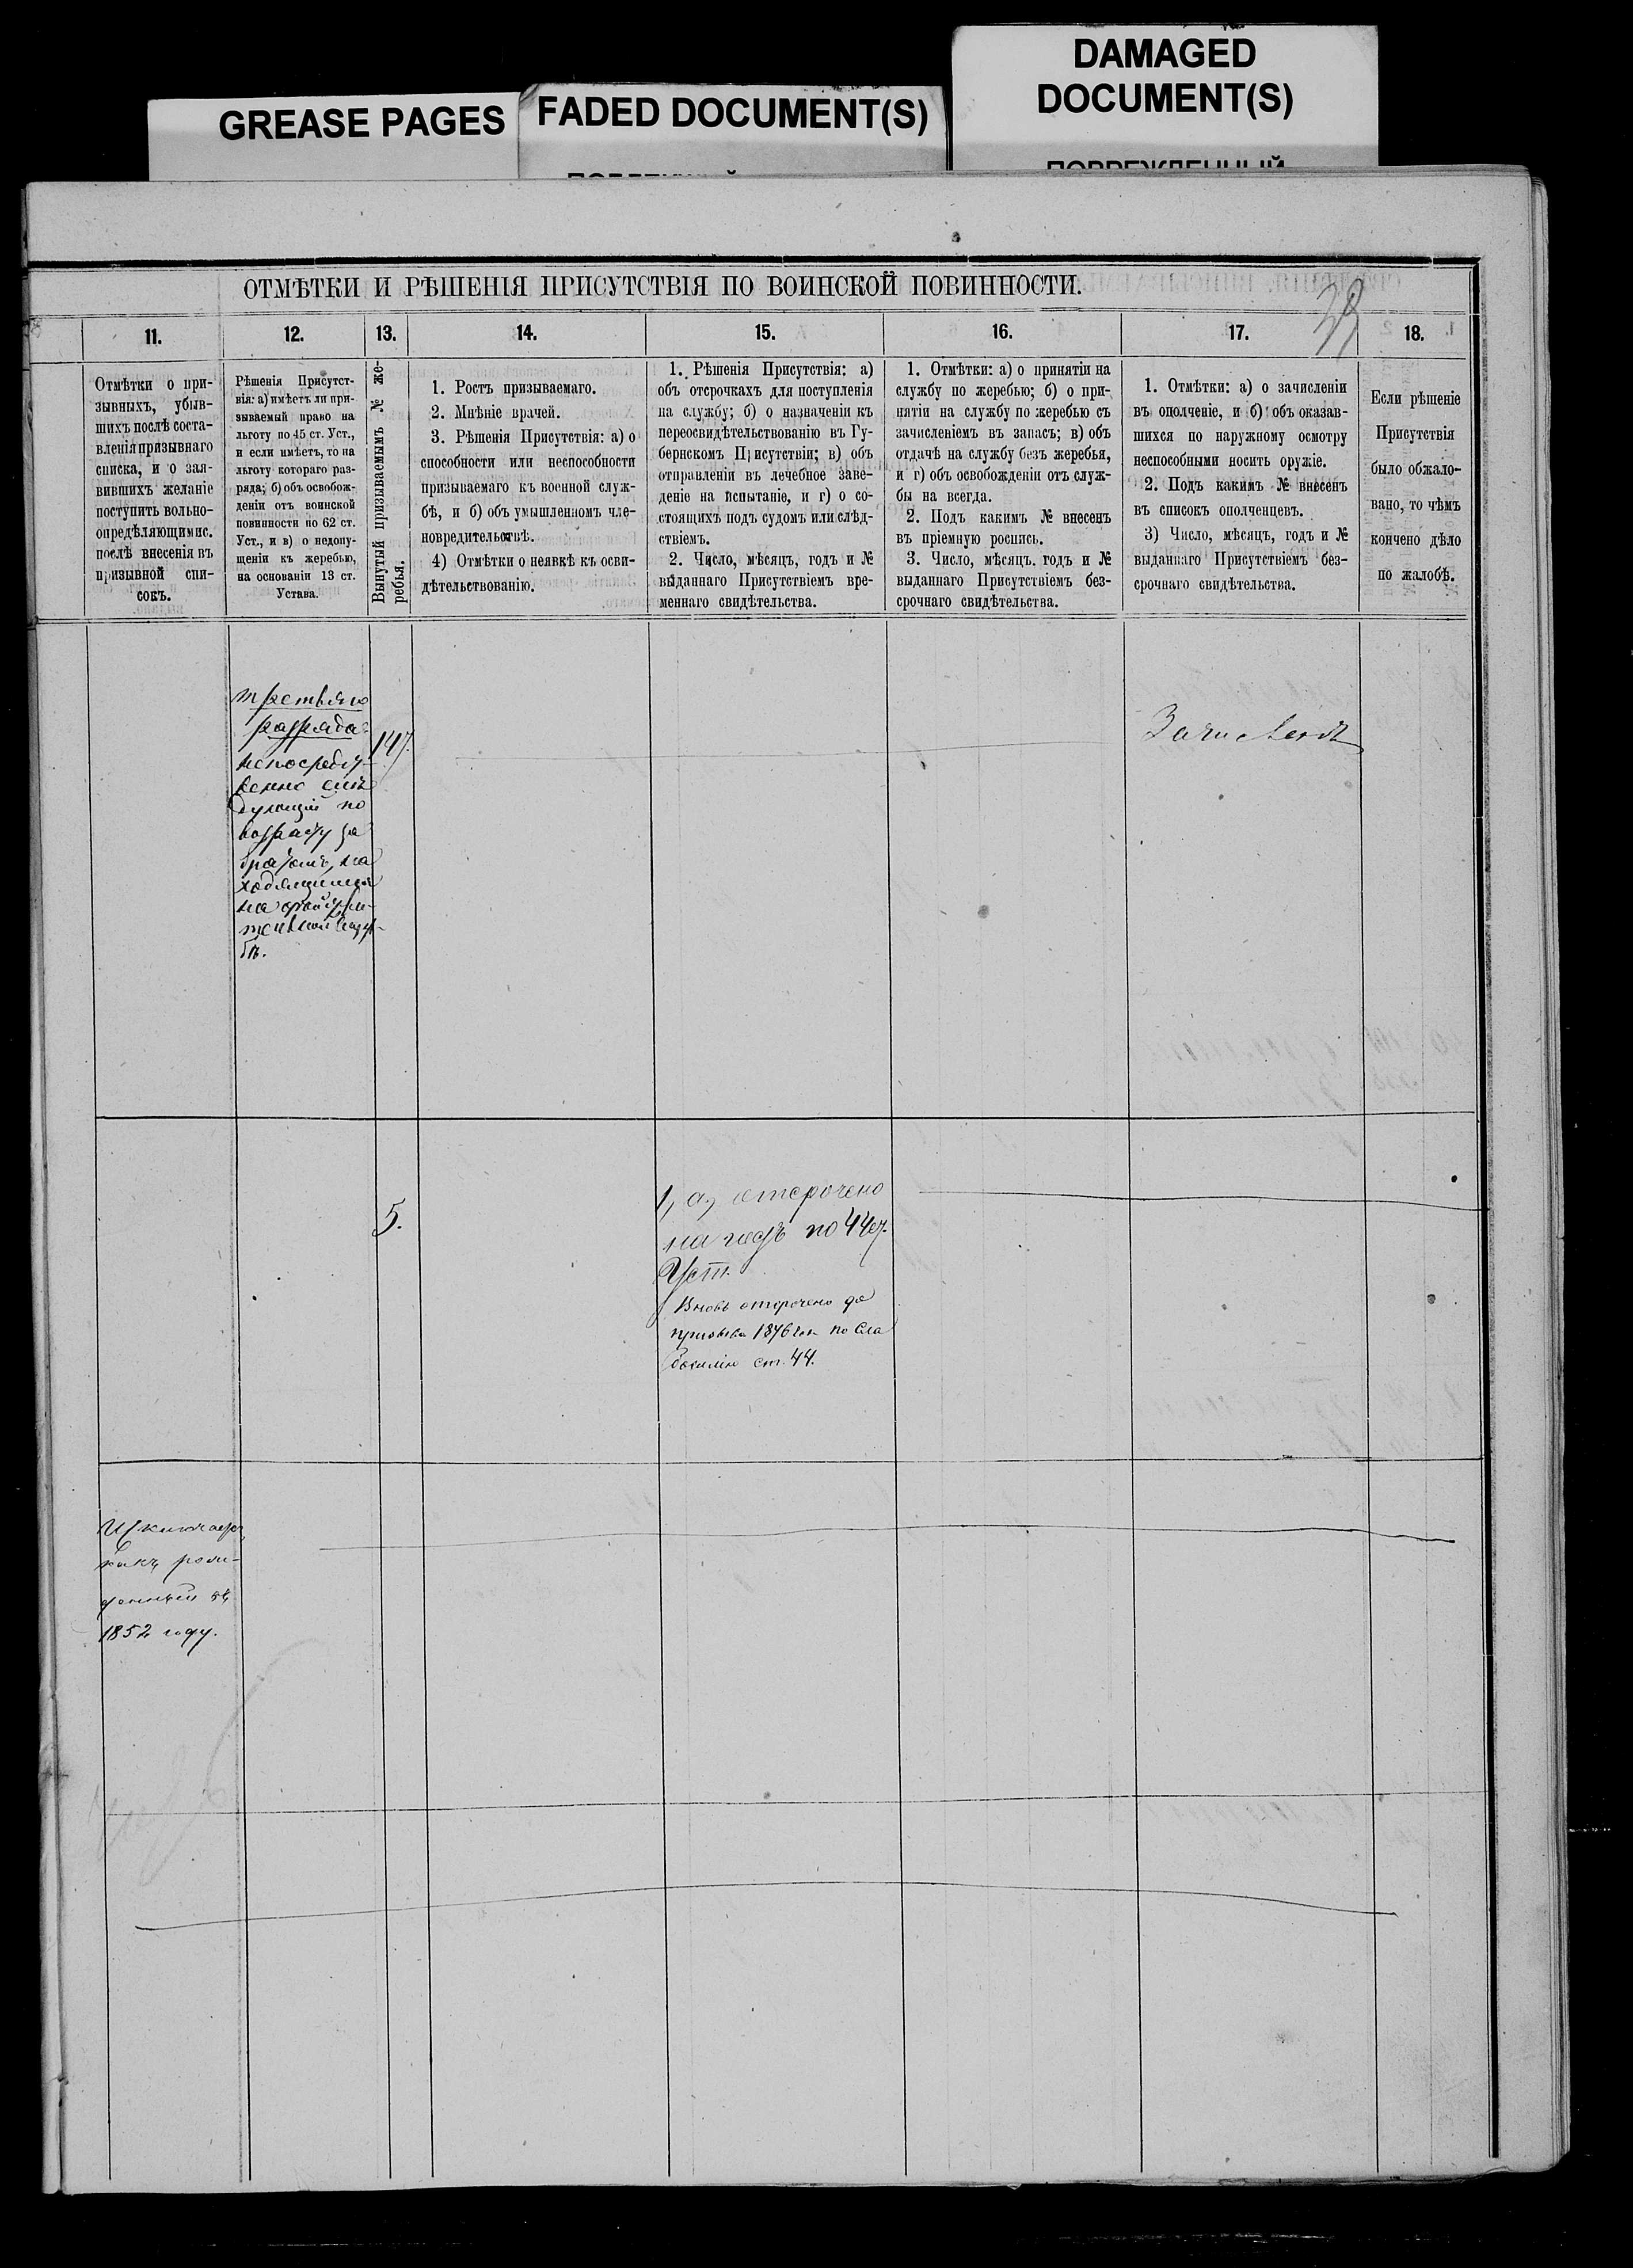 GREASE PAGES
FADED DOCUMENT(S)
DAMAGED
DOCUMENT(S)
ПОВРЕЖДЕННЫЙ
ОТМѢТКИ И РѢШЕНІЯ ПРИСУТСТВІЯ ПО ВОИНСКОЙ ПОВИННОСТИ.
11.
Отмѣтки о при-
зывныхъ, убыв-
шихъ послѣ соста-
вленія призывнаго
списка, и о зая-
вившихъ желаніе
поступить вольно-
опредѣляющимис.
послѣ внесенія въ
призывной спи-
сокъ.
12.
Рѣшенія Присутст-
вія: а) имѣетъ ли при-
зываемый право на
льготу по 45 ст. Уст.,
и если имѣетъ, то на
льготу котораго раз-
ряда; б) объ освобож-
деніи отъ воинской
повинности по 62 ст.
Уст., и в) о недопу-
щеніи къ жеребью,
на основаніи 13 ст.
Устава.
13.
Вынутый призываемымъ № же-
ребья.
14.
1. Ростъ призываемаго.
2. Мнѣніе врачей.
3. Рѣшенія Присутствія: а) о
способности или неспособности
призываемаго къ военной служ-
бѣ, и б) объ умышленномъ чле-
новредительствѣ.
4) Отмѣтки о неявкѣ къ осви-
дѣтельствованію.
15.
1. Рѣшенія Присутствія: а)
объ отсрочкахъ для поступленія
на службу; б) о назначеніи къ
переосвидѣтельствованію въ Гу-
бернскомъ Присутствіи; в) объ
отправленіи въ лечебное заве-
деніе на испытаніе, и г) о со-
стоящихъ подъ судомъ или слѣд-
ствіемъ.
2. Число, мѣсяцъ, годъ и №
выданнаго Присутствіемъ вре-
меннаго свидѣтельства.
16.
1. Отмѣтки: а) о принятіи на
службу по жеребью; б) о при-
нятіи на службу по жеребью съ
зачисленіемъ въ запасъ; в) объ
отдачѣ на службу безъ жеребья,
и г) объ освобожденіи отъ служ-
бы на всегда.
2. Подъ какимъ № внесенъ
въ пріемную роспись.
3. Число, мѣсяцъ. годъ и №
выданнаго Присутствіемъ без-
срочнаго свидѣтельства.
17.
1. Отмѣтки: а) о зачисленіи
въ ополченіе, и б) объ оказав-
шихся по наружному осмотру
неспособными носить оружіе.
2. Подъ какимъ № внесенъ
въ списокъ ополченцевъ.
3) Число, мѣсяцъ, годъ и №
выданнаго Присутствіемъ без-
срочнаго свидѣтельства.
18.
Если рѣшеніе
Присутствія
было обжало-
вано, то чѣмъ
кончено дѣло
по жалобѣ.
третьяго
разряда
непосредст-
венно слѣ
дующій по
возрасту за
братомъ, на
ходящимся
на дѣйстви-
тельной служ-
бѣ.
147.
Зачисленъ
5.
1, а, отсрочено
на годъ по 44 ст.
Уст.
Вновь отсрочено до
призыва 1876 года по сла
босилію ст. 44.
Исключается
какъ рож-
денный въ
1852 году.